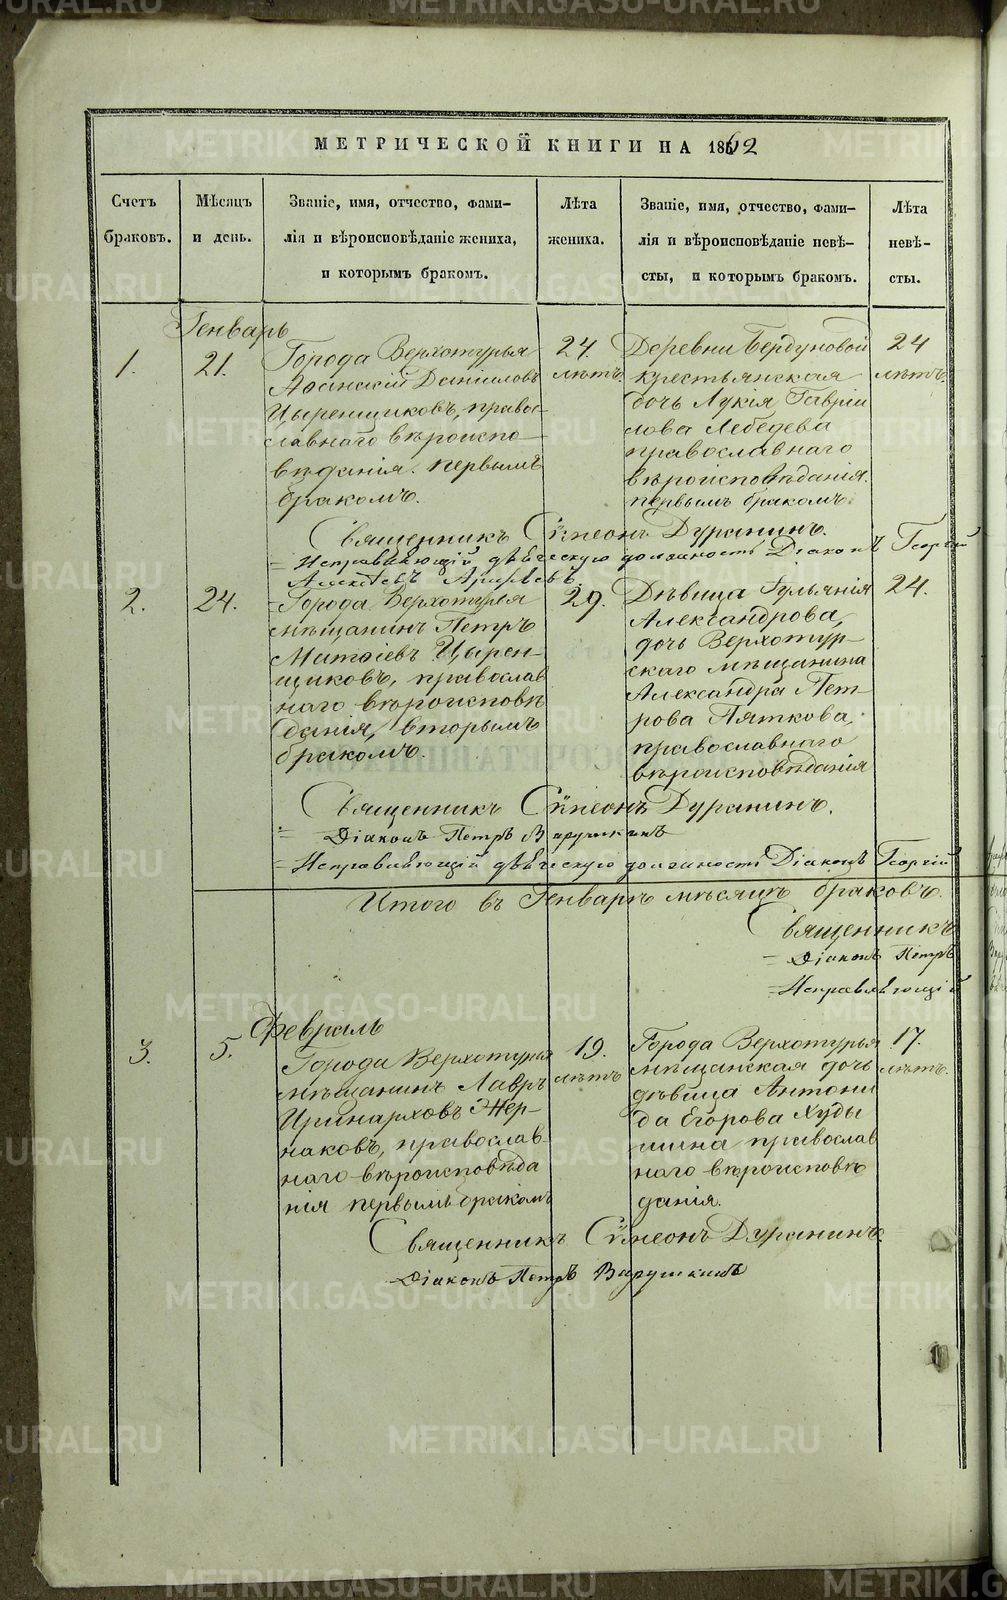 МЕТРИЧЕСКОЙ КНИГИ НА 1862
Счетъ браковъ.
Мѣсяцъ и день.
Званіе, имя, отчество, фами-
лія и вѣроисповѣданіе жениха,
и которымъ бракомъ.
Лѣта жениха.
Званіе, имя, отчество, фами-
лія и вѣроисповѣданіе невѣ-
сты, и которымъ бракомъ.
Лѣта невѣ-
сты.
Генварь
1.
21.
Города Верхотурья
Даніиловъ
Цыренщиковъ, право-
славнаго вѣроиспо-
вѣданія. первымъ
бракомъ.
24.
лѣтъ.
Деревни Бердуновой
крестьянская
дочь Лукія Гаврии
лова Лебедева
православнаго
вѣроисповѣданія.
первымъ бракомъ.
24
лѣтъ.
Священникъ Сѵмеонъ Дуранинъ.
= Исправляющій дьяческую должность Діаконъ Георгій
2.
24.
Города Верхотурья
мѣщанинъ Петръ
Матѳіевъ Цырен-
щиковъ, православ
наго вѣроисповѣ
данія, вторымъ
бракомъ.
29.
Дѣвица Іульянія
Александрова,
дочь Верхотур-
скаго мѣщанина
Александра Пет-
рова Пяткова,
православнаго
вѣроисповѣданія
24.
Священникъ Сѵмеонъ Дуранинъ.
= Діаконъ Петръ Варушкинъ
= Исправляющій дьяческую должность Діаконъ Георгій
Итого въ Генварѣ мѣсяцѣ браковъ.
Священникъ
= Діаконъ Петръ
= Исправляющій
Февраль
3.
5.
Города Верхотурья
мѣщанинъ Лавръ
Иринарховъ Жер-
наковъ, православ-
наго вѣроисповѣда
нія первымъ бракомъ
19.
лѣтъ
Города Верхотурья
мѣщанская дочь
дѣвица Антони
да Егорова Худы
шина православ
наго вѣроисповѣ
данія.
17.
лѣтъ.
Священникъ Сѵмеонъ Дуранинъ.
Діаконъ Петръ Варушкинъ
METRIKI.GASO-URAL.RU